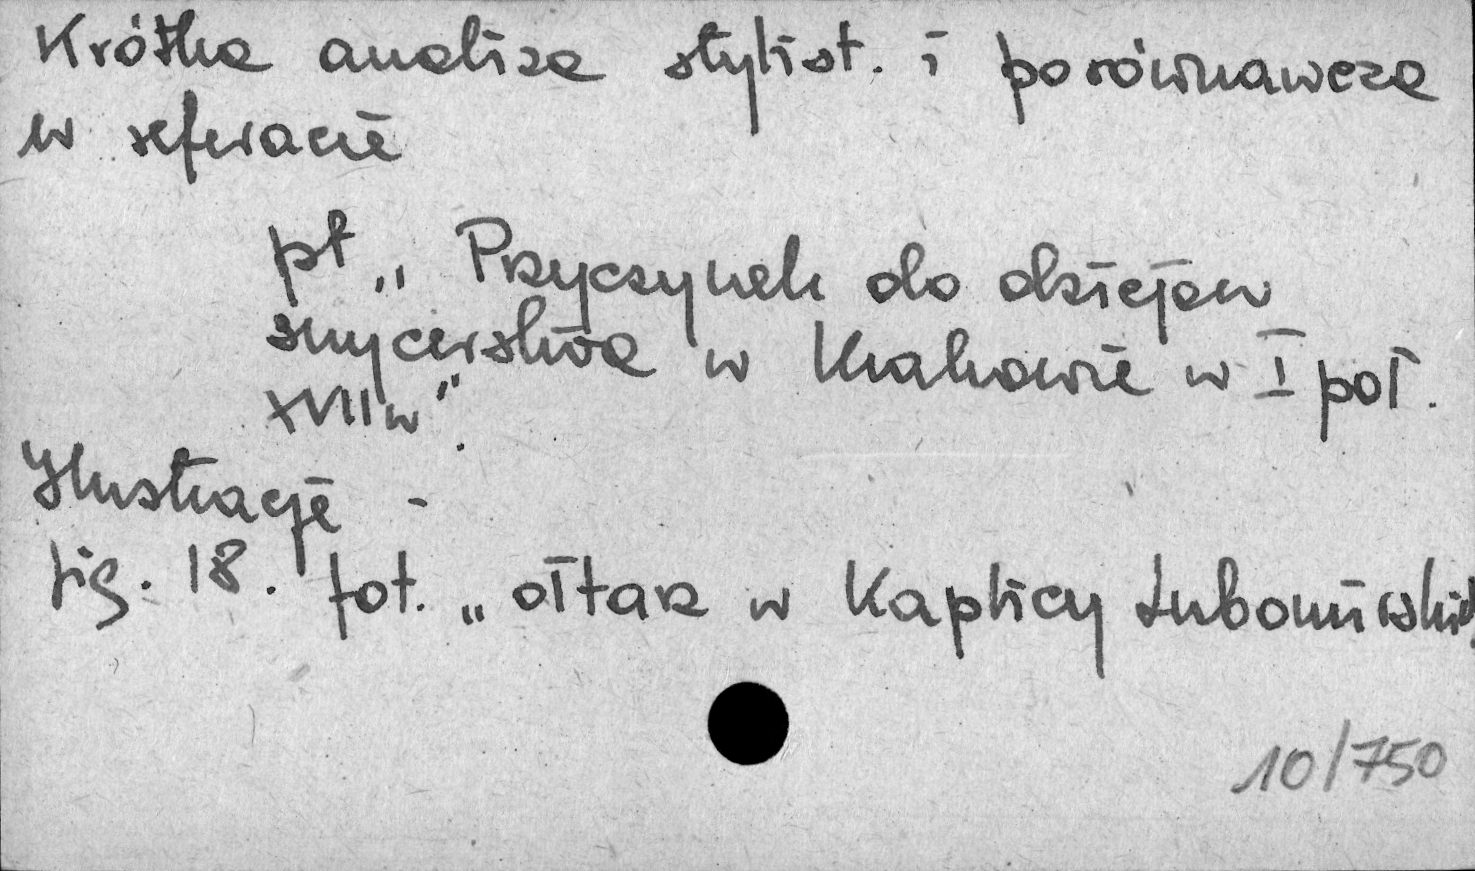 Krótka analiza stylist. i porównawcza
w referacie
pt „Przyczynek do dziejow
snycerstwa w Krakowie w I poł.
XVII w".
Ilustracje -
fig. 18. fot. „ołtarz w Kaplicy Lubomirskich
10/750